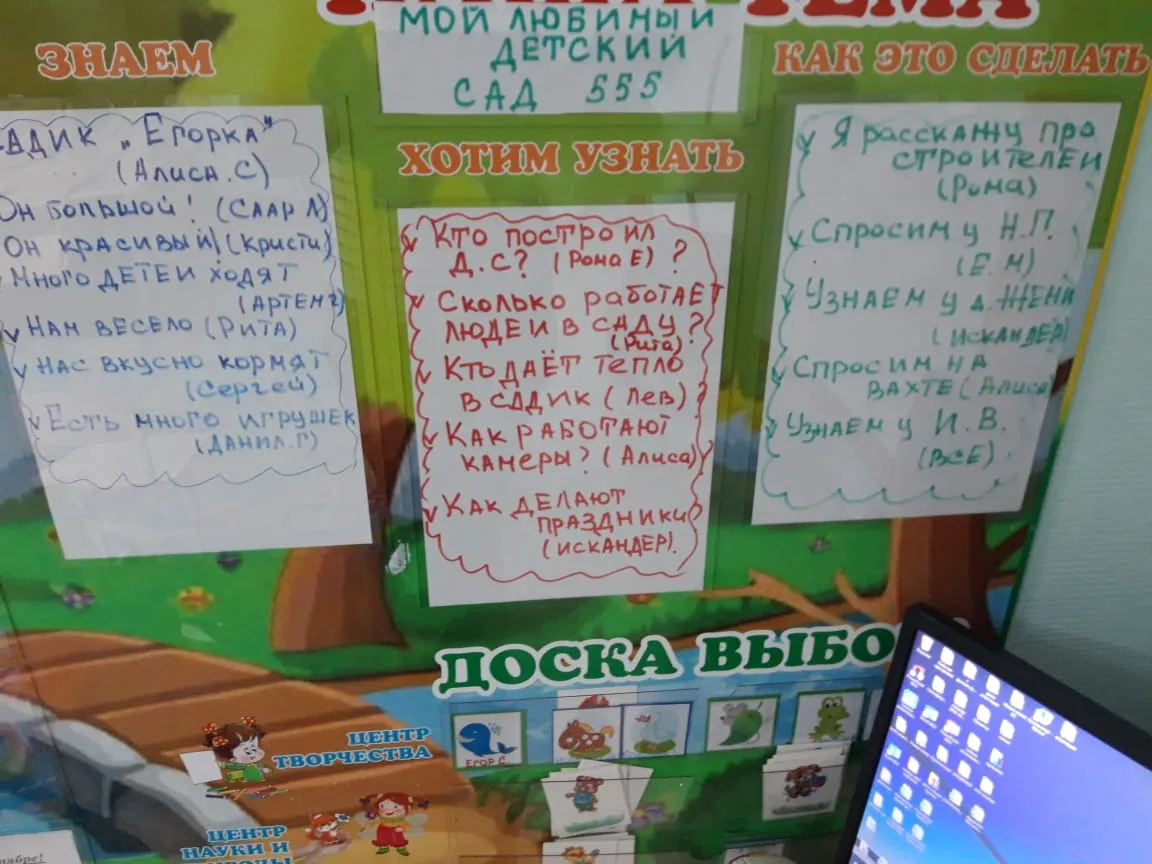 ТЕМА
МОЙ ЛЮБИМЫЙ
ДЕТСКИЙ
САД 555
ЗНАЕМ
АДИК „ЕГОРКА"
(АЛИСА.С)
ОН БОЛЬШОЙ!
ОН КРАСИВЫЙ! (КРИСТИ)
МНОГО ДЕТЕЙ ХОДЯТ
(АРТЕМ Г)
НАМ ВЕСЕЛО (РИТА)
НАС ВКУСНО КОРМЯТ
(СЕРГЕЙ)
ЕСТЬ МНОГО ИГРУШЕК
(ДАНИЛ.Г)
ХОТИМ УЗНАТЬ
КТО ПОСТРОИЛ
Д.С? (РОМА Е) ?
СКОЛЬКО РАБОТАЕТ
ЛЮДЕЙ В САДУ?
(РИТА)
КТО ДАЁТ ТЕПЛО
В САДИК (ЛЕВ)?
КАК РАБОТАЮТ
КАМЕРЫ? (АЛИСА)
КАК ДЕЛАЮТ
ПРАЗДНИКИ
(ИСКАНДЕР).
КАК ЭТО СДЕЛАТЬ
Я РАССКАЖУ ПРО
СТРОИТЕЛЕЙ
(РОМА)
СПРОСИМ У Н.П.
(Е.М)
УЗНАЕМ У Д.ЖЕНИ
(ИСКАНДЕР)
СПРОСИМ НА
ВАХТЕ (АЛИСА)
УЗНАЕМ У И.В.
(ВСЕ).
ДОСКА ВЫБО
ЦЕНТР
ТВОРЧЕСТВА
ЕГОР С
ЦЕНТР
НАУКИ И